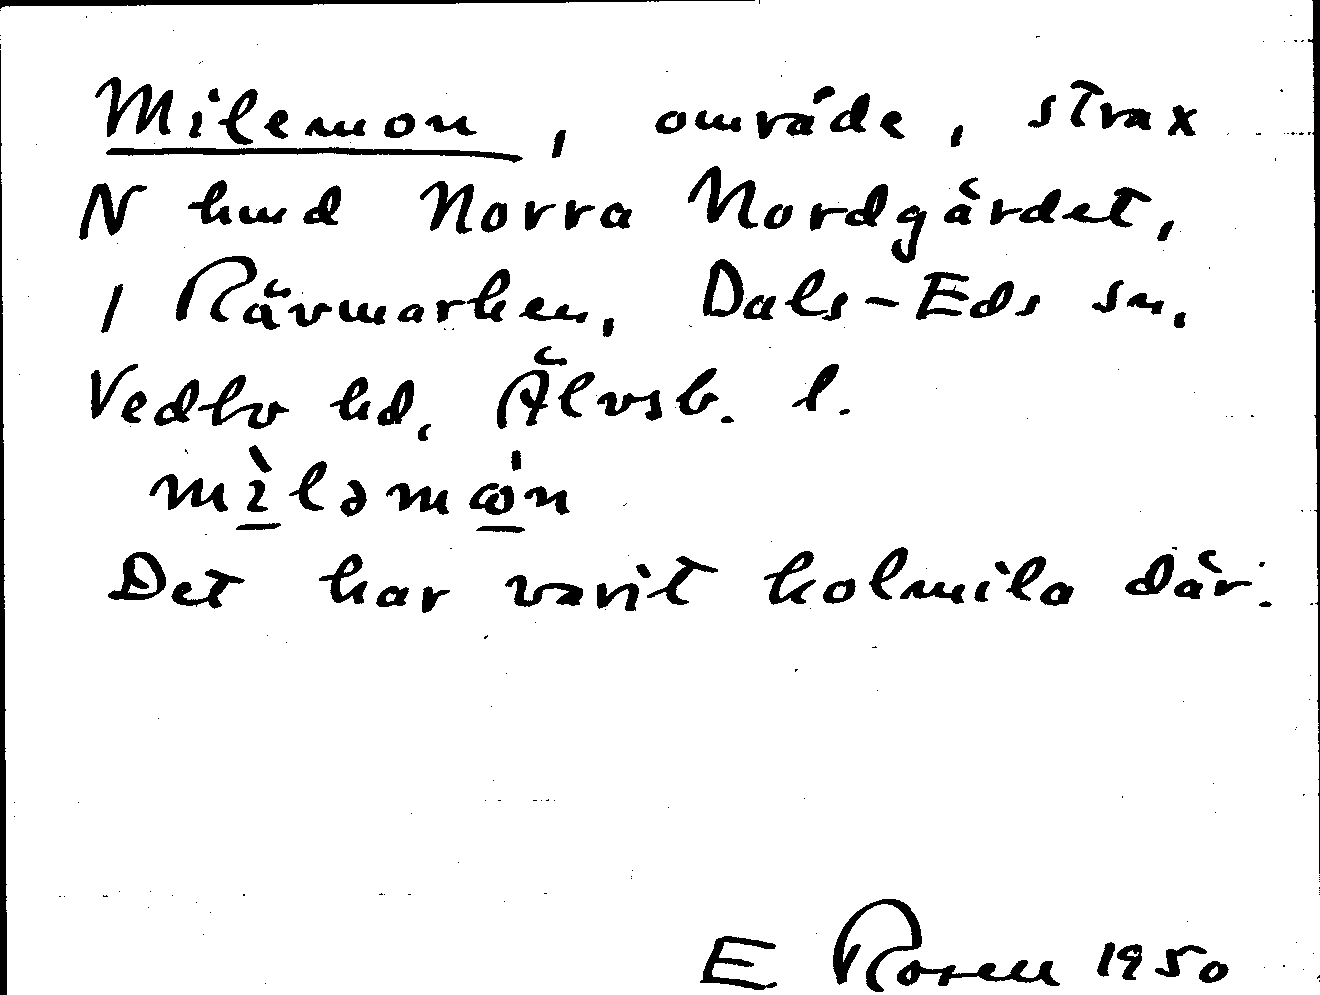 Milemon, område, strax
N hmd Norra Nordgärdet,
i Rävmarken, Dals-Eds sn,
Vedbo hd, Älvsb. l.
mìləmω̇n
Det har varit kolmila där.
E Rosell 1950